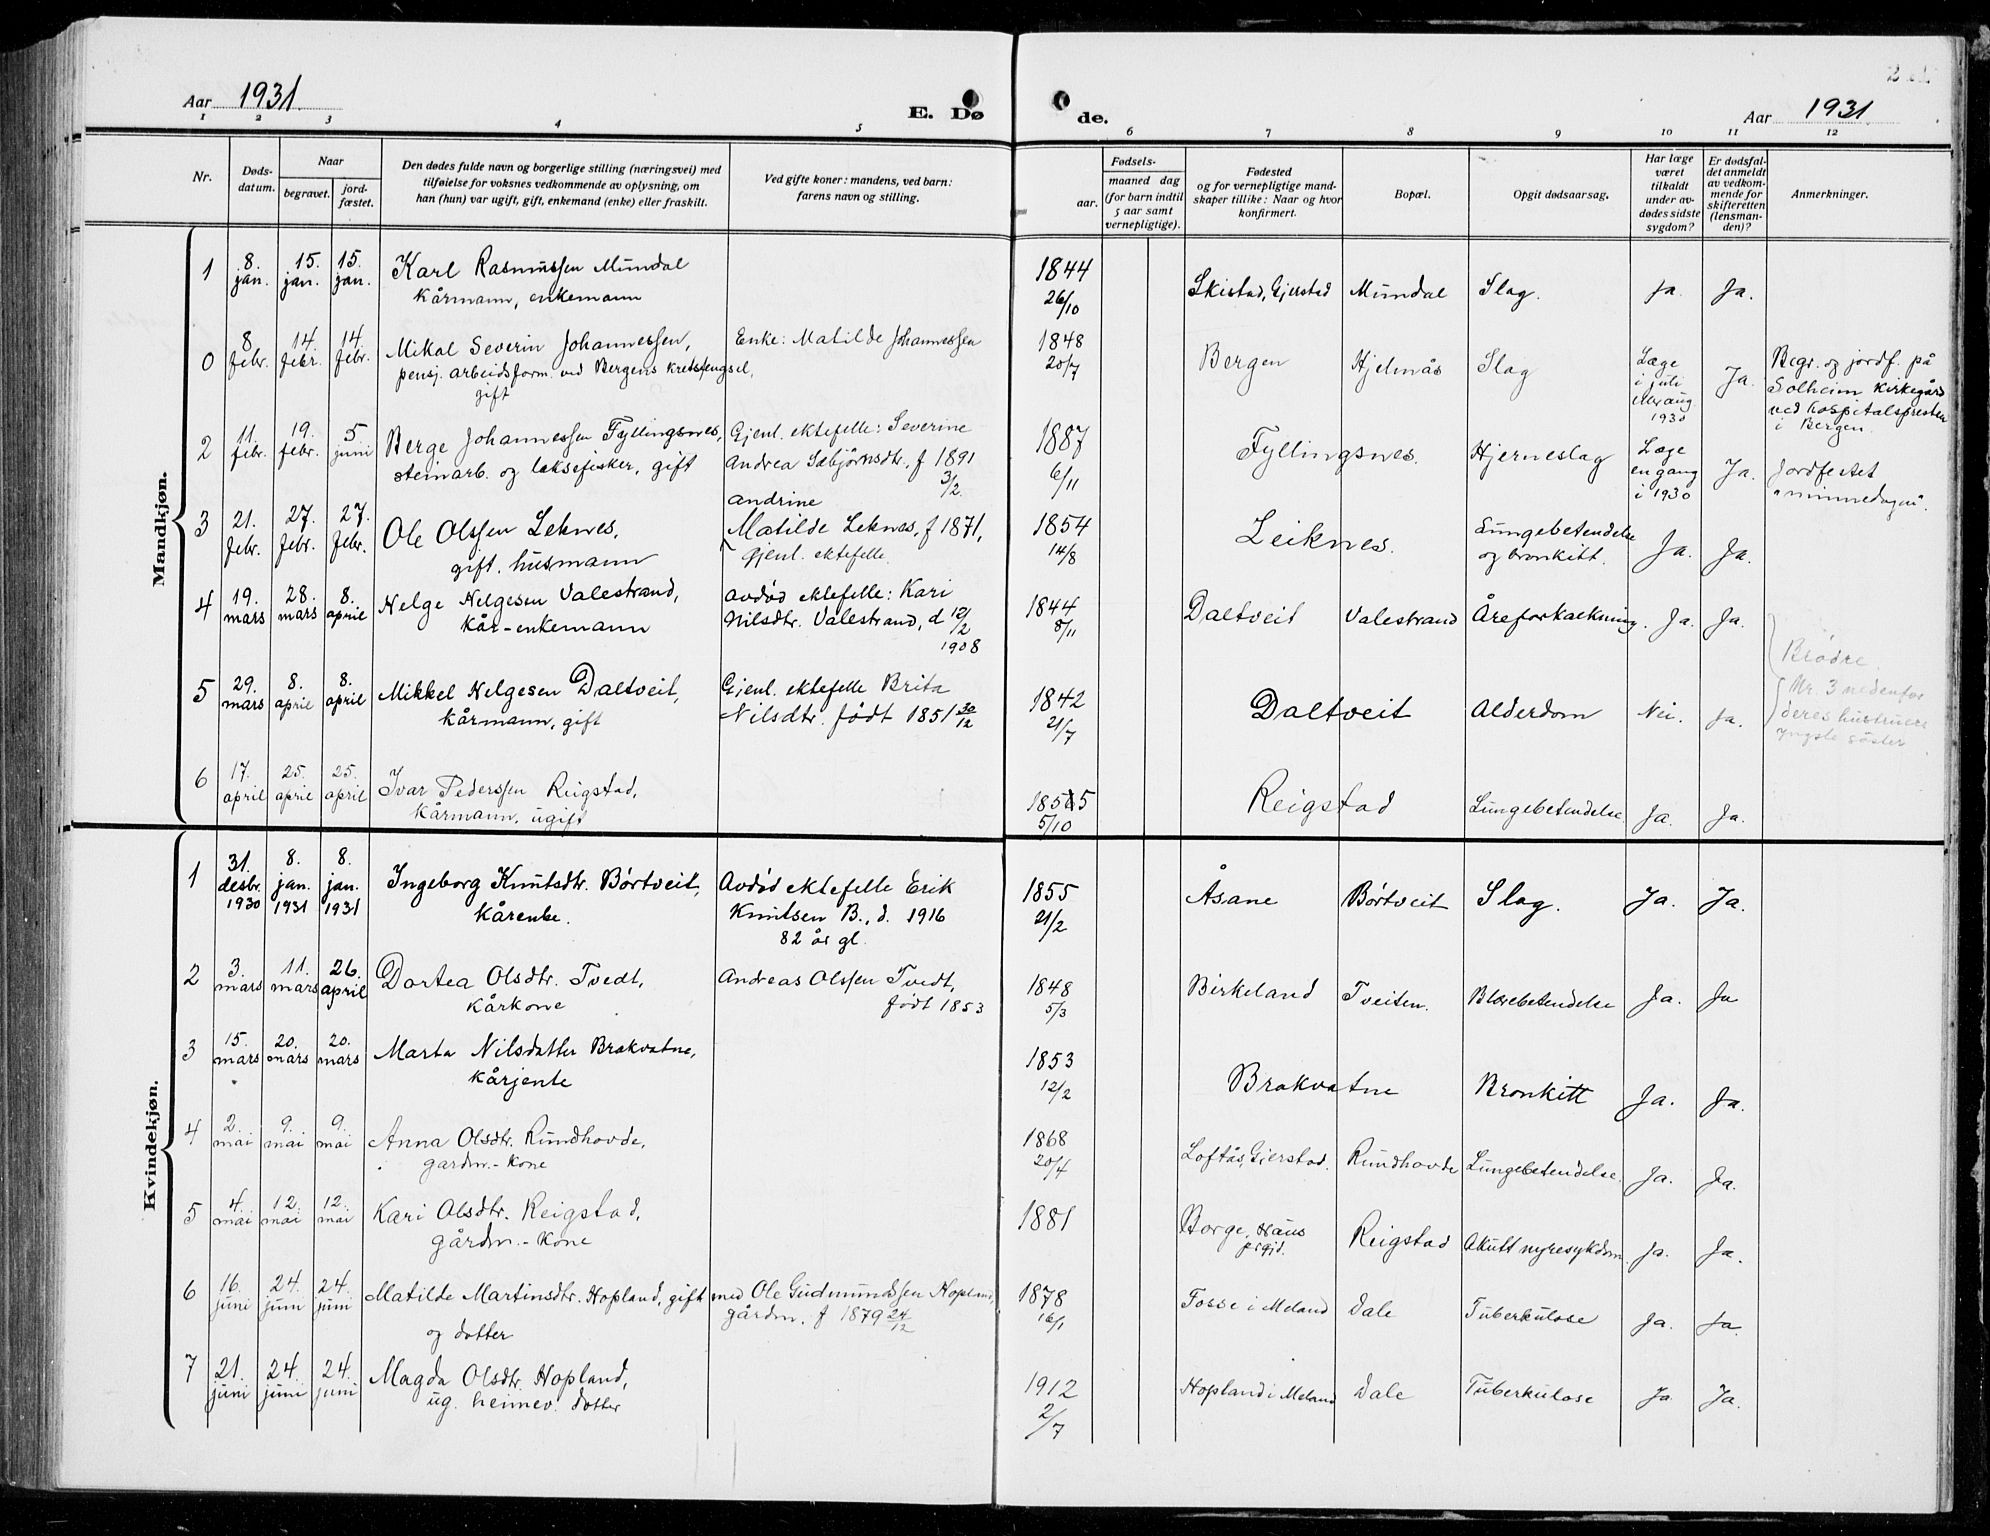 Aar 1931.
E. Døde.
Aar 1931.
1 2 3 4 5 6 7 8 9 10 11 12
Nr.
Døds-
datum.
Naar
begravet.
jord-
fæstet.
Den dødes fulde navn og borgerlige stilling (næringsvei) med
tilføielse for voksnes vedkommende av oplysning, om
han (hun) var ugift, gift, enkemand (enke) eller fraskilt.
Ved gifte koner: mandens, ved barn:
farens navn og stilling.
Fødsels-
aar.
maaned dag
(for barn indtil
5 aar samt
vernepligtige).
Fødested
og for vernepligtige mand-
skaper tillike: Naar og hvor
konfirmert.
Bopæl.
Opgit dødsaarsag.
Har læge
været
tilkaldt
under av-
dødes sidste
sygdom?
Er dødsfal-
det anmeldt
av vedkom-
mende for
skifteretten
(lensman-
den)?
Anmerkninger.
Mandkjøn.
1 8. jan. 15. jan. 15. jan. Karl Rasmussen Mundal
kårmann, enkemann
1844
26/10
Skistad, Gjerstad Mundal Slag. Ja. Ja.
0 8 febr. 14. febr. 14. febr. Mikal Severin Johannessen,
pensj. arbeidsform. ved Bergens kretsfengsel,
gift
Enke: Matilde Johannessen
1848
20/7
Bergen Hjelmås Slag
Læge
i juli
eller aug.
1930
Ja.
Begr. og jordf. på
Solheim kirkegård
ved hospitalspresten
i Bergen.
2 11. febr. 19. febr. 5 juni Berge Johannessen Fyllingsnes,
steinarb. og laksefisker, gift
Gjenl. ektefelle: Severine
Andrea Sæbjørnsdtr. f 1891
3/2.
1887
6/11
Fyllingsnes. Hjerneslag
Læge
en gang
i 1930
Ja.
Jordfestet
"minnedagen".
3 21. febr. 27. febr. 27. febr. Ole Olssen Leknes,
gift. husmann
andrine
Matilde Leknes, f 1871,
gjenl. ektefelle.
1854
14/8
Leiknes.
Lungebetendelse
og bronkitt.
Ja. Ja.
4 19. mars 28. mars 8. april Helge Helgesen Valestrand,
kår-enkemann
Avdød ektefelle: Kari
Nilsdtr. Valestrand, d 12/2
1908
1844
8/11
Daltveit Valestrand Åreforkalkning. Ja. Ja.
5 29. mars 8. april 8. april Mikkel Helgesen Daltveit,
kårmann, gift
Gjenl. ektefelle Brita
Nilsdtr. født 1851 30/12
1842
21/7
Daltveit Alderdom Nei. Ja.
Brødre.
Nr. 3 nedenfor
deres hustruers
yngste søster.
6 17. april 25. april 25. april Ivar Pederssen Reigstad,
kårmann, ugift
1855
5/10
Reigstad Lungebetendelse. Ja. Ja.
Kvindekjøn.
1 31. desbr. 1930 8. jan. 1931 8. jan. 1931 Ingeborg Knutsdtr. Børtveit,
kårenke.
Avdød ektefelle Erik
Knutsen B., d. 1916
82 år gl.
1855
21/2
Åsane Børtveit Slag. Ja. Ja.
2 3. mars 11. mars 26. april Dortea Olsdtr. Tvedt,
kårkone
Andreas Olssen Tvedt,
født 1853
1848
5/3
Birkeland Tveiten. Blærebetendelse Ja. Ja
3 15. mars 20. mars 20. mars Marta Nilsdatter Brakvatne,
kårjente
1853
12/2
Brakvatne Bronkitt Ja. Ja.
4 2. mai 9. mai 9. mai Anna Olsdtr. Rundhovde,
gardm.-kone
1868
20/4
Loftås, Gjerstad. Rundhovde Lungebetendelse. Ja. Ja.
5 4. mai 12. mai 12. mai Kari Olsdtr. Reigstad,
gårdm.-kone
1881
Borge, Haus
prgjd.
Reigstad Akutt nyresykdom Ja. Ja.
6 16. juni 24. juni 24. juni Matilde Martinsdtr. Hopland, gift med Ole Gudmundssen Hopland,
og dotter
gårdm. f 1879 24/12
1878
16/1
Fosse i Meland Dale Tuberkulose Ja. Ja.
7 21. juni 24. juni 24. juni Magda Olsdtr. Hopland,
ug. heimev. dotter
1912
2/7
Hopland i Meland Dale Tuberkulose Ja Ja.